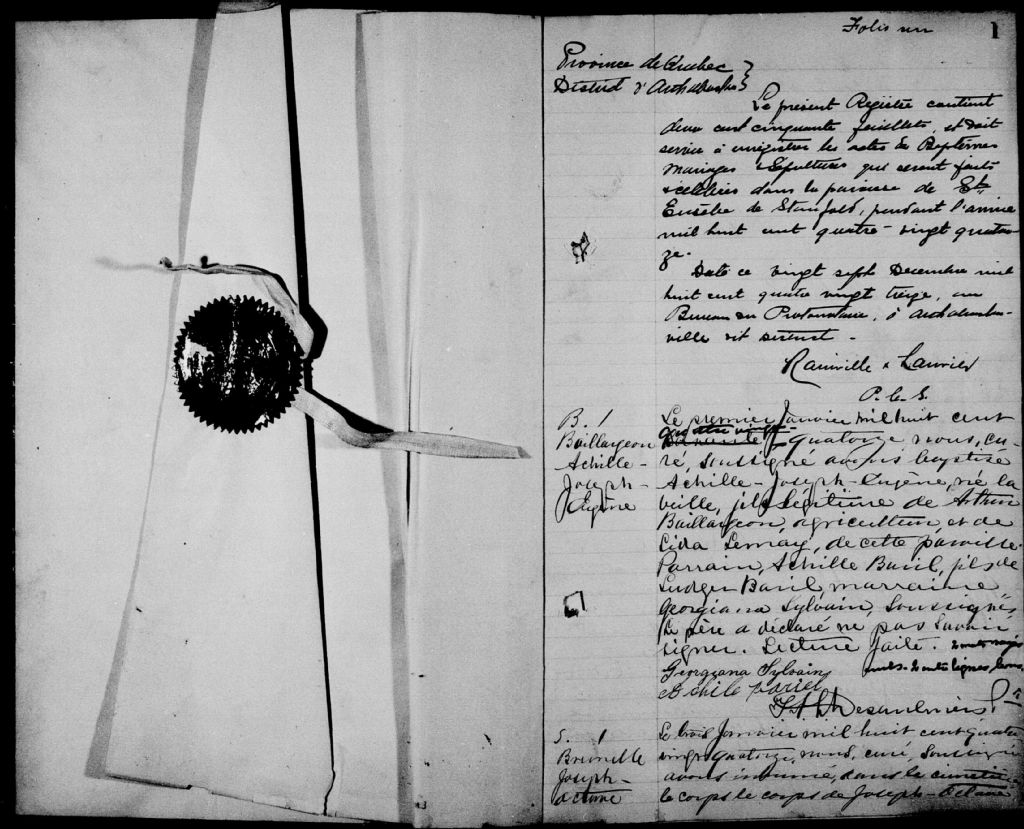 Folio un
1
Province de Québec
District d'Arthabaska
Le présent Registre contient
deux cent cinquante feuillets, et doit
servir à enregistrer les actes de Baptêmes
Mariages & Sépultures qui seront faits
& célébrés dans la paroisse de St
Eusèbe de Stanfold, pendant l'année
mil huit cent quatre-vingt quator-
ze.
Daté ce vingt sept Décembre mil
huit cent quatre vingt treize, au
Bureau du Protonotaire, à Arthabaska-
ville dit district.
Rainville & Laurier
P. C. S.
B. 1
Baillargeon
Achille-
Joseph-
Eugène
Le premier Janvier mil huit cent
quatre vingt
quatorze nous, cu-
ré, soussigné avons baptisé
Achille-Joseph-Eugène, né la
veille, fils légitime de Arthur
Baillargeon, agriculteur, et de
Lida Lemay, de cette paroisse.
Parrain, Achille Baril, fils de
Ludger Baril, marraine
Georgiana Sylvain, soussignés
Le père a déclaré ne pas savoir
signer. Lecture faite.
Georgzana Sylvain
Achile Baril
Desaulniers Ptre
S. 1
Brunelle
Joseph-
Octave
Le trois Janvier mil huit cent quatre
vingt quatorze, nous, curé, soussigné
avons inhumé, dans le cimetière
le corps le corps de Joseph-Octave